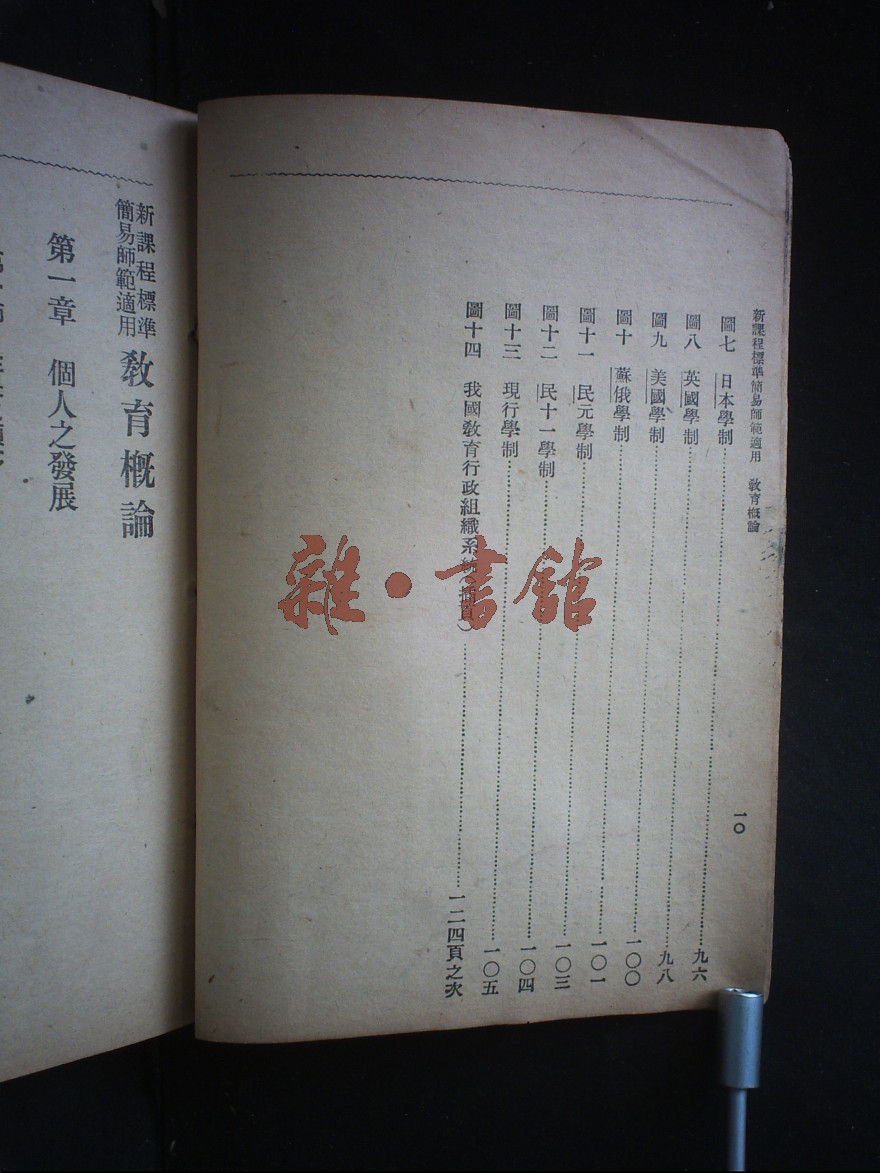 新課程標準簡易師範適用 敎育概論
一〇
圖七 日本學制……九六
圖八 英國學制……九八
圖九 美國學制……一〇〇
圖十 蘇俄學制……一〇一
圖十一 民元學制……一〇三
圖十二 民十一學制……一〇四
圖十三 現行學制……一〇五
圖十四 我國敎育行政組織系統(插頁)……一二四頁之次
雜·書館
新課程標準
簡易師範適用
敎育概論
第一章 個人之發展